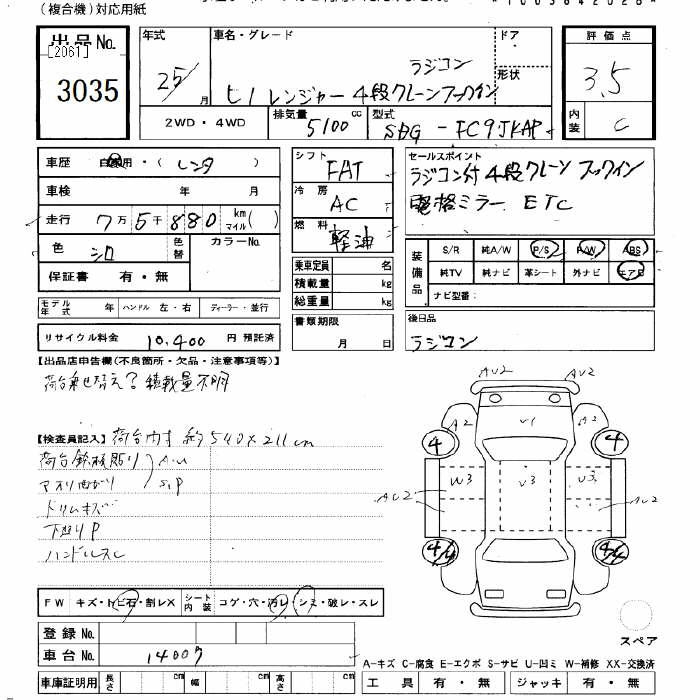 (複合機)対応用紙
出品No.
[2061]
3035
年式
25/
月
車名・グレード
ラジコン
ヒノ レンジャー 4段クレーンフックイン
ドア
形状
2WD・4WD
排気量
5100
cc
型式
SDG-FC9JKAP
評価点
3.5
内装
C
車歴
自家用・(レンタ)
車検
年
月
走行
7万5千880
km
マイル
( )
色
シロ
色替
カラーNo.
保証書 有・無
モデル年式
年
ハンドル 左・右
ディーラー・並行
リサイクル料金
10,400
円
預託済
シフト
FAT
冷房
AC
燃料
軽油
乗車定員
名
積載量
kg
総重量
kg
書類期限
月
日
セールスポイント
ラジコン付 4段クレーン フックイン
電格ミラー ETC
装備品
S/R 純A/W P/S P/W ABS
純TV 純ナビ 革シート 外ナビ エアB
ナビ型番:
後日品
ラジコン
【出品店申告欄(不良箇所・欠品・注意事項等)】
荷台乗せ替え?積載量不明
【検査員記入】荷台内寸 約540×211cm
荷台鉄板貼り
A.U
アオリ曲がり
S.P
ドリムキズ
下廻りP
ハンドルスレ
FW
キズ・トビ石・割レX
シート内装
コゲ・穴・汚レ・シミ・破レ・スレ
登録No.
車台No.
14007
車庫証明用
長さ
cm
幅
cm
高さ
cm
AU2
AU2
A2
A2
V1
4
4
W3
V3
V3
AU2
AU2
4/4
4/4
スペア
A-キズ C-腐食 E-エクボ S-サビ U-凹ミ W-補修 XX-交換済
工具
有・無
ジャッキ
有・無